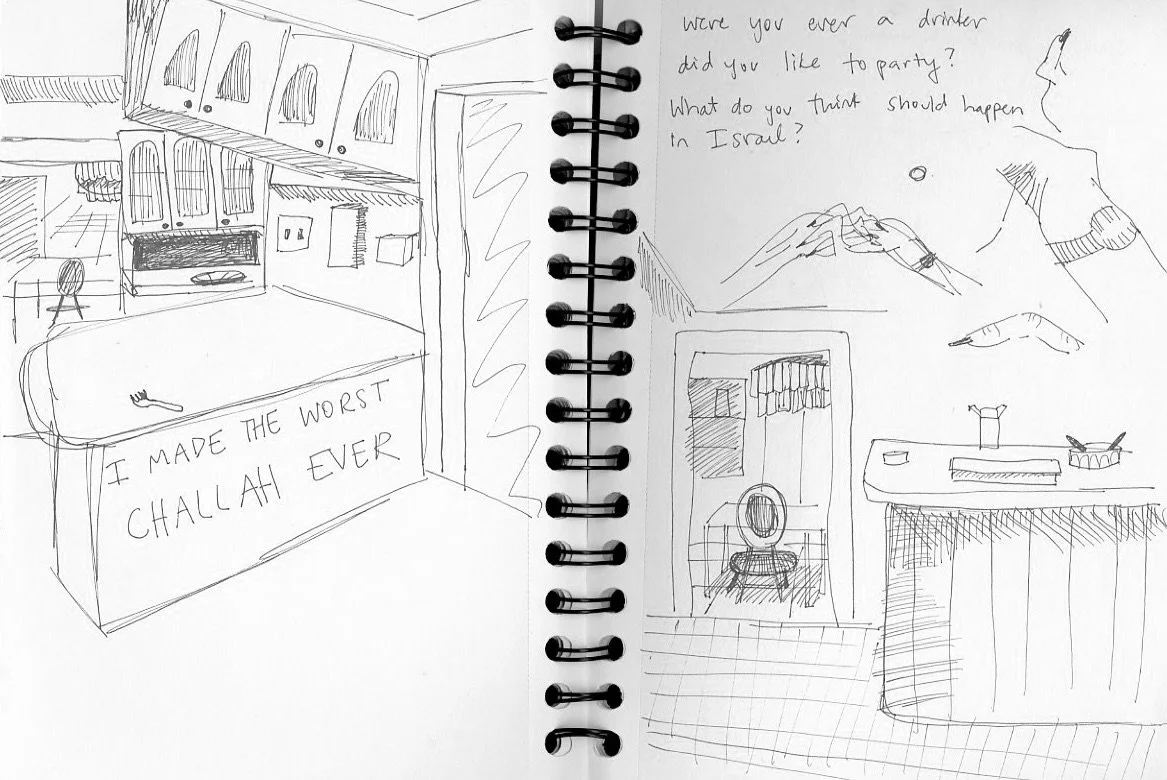 I MADE THE WORST
CHALLAH EVER
Were you ever a drinker
did you like to party?
What do you think should happen
in Israel?